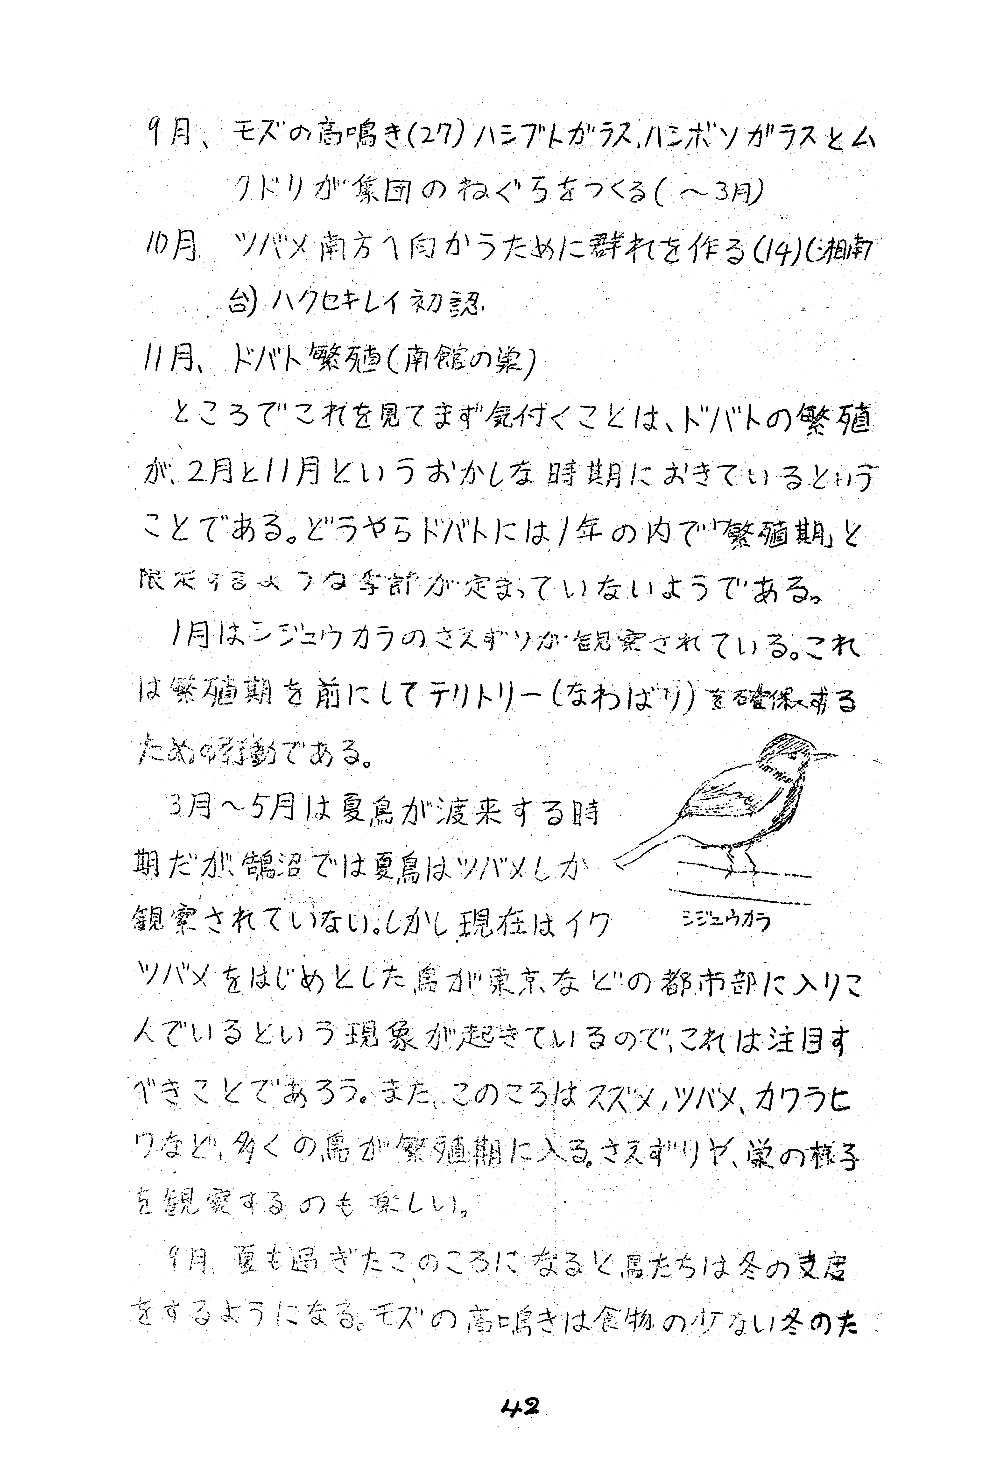 9月、モズの高鳴き(27)ハシブトガラス、ハシボソガラスとム
クドリが集団のねぐらをつくる(〜3月)
10月 ツバメ南方へ向かうために群れを作る(14)(湘南
台)ハクセキレイ初認.
11月、ドバト繁殖(南館の巣)
ところでこれを見てまず気付くことは、ドバトの繁殖
が、2月と11月というおかしな時期におきているという
ことである。どうやらドバトには1年の内で「繁殖期」と
限定するような季節が定まっていないようである。
1月はシジュウカラのさえずりが観察されている。これ
は繁殖期を前にしてテリトリー(なわばり)を確保する
ための行動である。
3月〜5月は夏鳥が渡来する時
期だが、鵠沼では夏鳥はツバメしか
観察されていない。しかし現在はイワ
シジュウカラ
ツバメをはじめとした鳥が東京などの都市部に入りこ
んでいるという現象が起きているので、これは注目す
べきことであろう。また、このころはスズメ、ツバメ、カワラヒ
ワなど、多くの鳥が繁殖期に入る。さえずりや、巣の様子
を観察するのも楽しい。
9月、夏も過ぎたこのころになると鳥たちは冬の支度
をするようになる。モズの高鳴きは食物の少ない冬のた
42